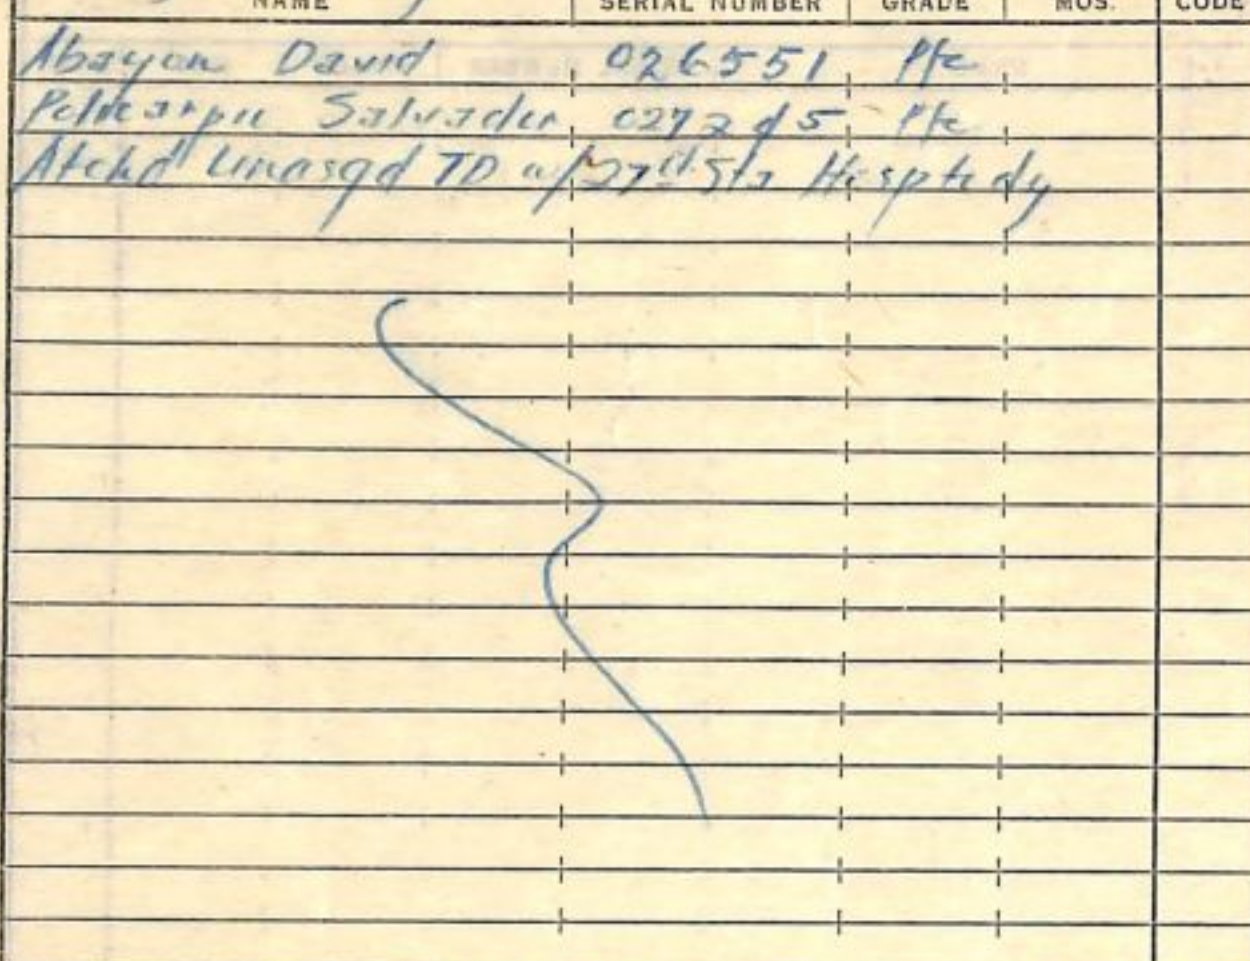 NAME SERIAL NUMBER GRADE MOS. CODE
Abayon David 026551 Pfc
Policarpio Salvador Pfc
Atchd Unasgd TD w/ 27th Sta Hosp fr dy